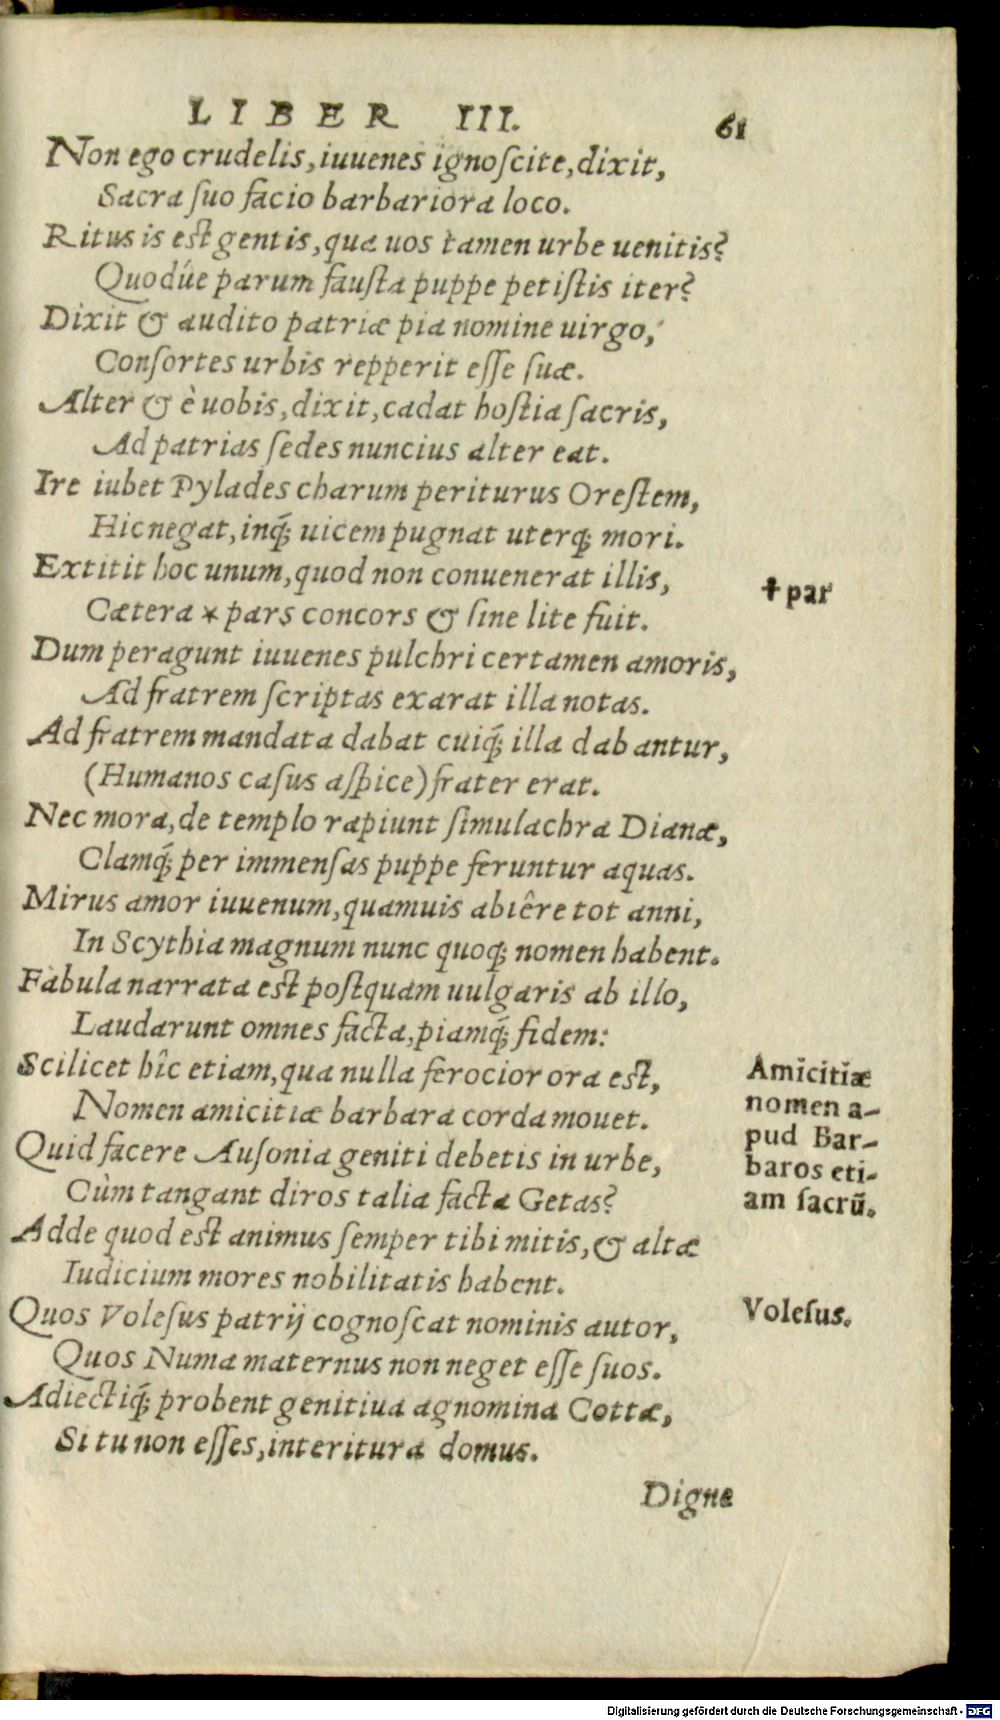 LIBER III. 61
Non ego crudelis, iuuenes ignoſcite, dixit,
Sacra ſuo facio barbariora loco.
Ritus is est gentis, qua uos tamen urbe uenitis?
Quodúe parum fauſta puppe petiſtis iter?
Dixit & audito patriæ pia nomine uirgo,
Conſortes urbis repperit eſſe ſuæ.
Alter & è uobis, dixit, cadat hoſtia ſacris,
Ad patrias ſedes nuncius alter eat.
Ire iubet Pylades charum periturus Oreſtem,
Hic negat, inq́; uicem pugnat uterq; mori.
Extitit hoc unum, quod non conuenerat illis,
✝par
Cætera * pars concors & ſine lite fuit.
Dum peragunt iuuenes pulchri certamen amoris,
Ad fratrem ſcriptas exarat illa notas.
Ad fratrem mandata dabat cuiq́; illa dabantur,
(Humanos caſus aſpice) frater erat.
Nec mora, de templo rapiunt ſimulachra Dianæ,
Clamq́; per immenſas puppe feruntur aquas.
Mirus amor iuuenum, quamuis abiêre tot anni,
In Scythia magnum nunc quoq; nomen habent.
Fabula narrata est poſtquam uulgaris ab illo,
Laudarunt omnes facta, piamq́; fidem:
Scilicet hîc etiam, qua nulla ferocior ora est,
Nomen amicitiæ barbara corda mouet.
Quid facere Auſonia geniti debetis in urbe,
Cùm tangant diros talia facta Getas?
Amicitiæ
nomen a-
pud Bar-
baros eti-
am ſacrũ.
Adde quod est animus ſemper tibi mitis, & altæ
Iudicium mores nobilitatis habent.
Quos Voleſus patrij cognoſcat nominis autor,
Voleſus.
Quos Numa maternus non neget eſſe ſuos.
Adiectiq́; probent genitiua agnomina Cottæ,
Si tu non eſſes, interitura domus.
Digne
Digitalisierung gefördert durch die Deutsche Forschungsgemeinschaft - DFG